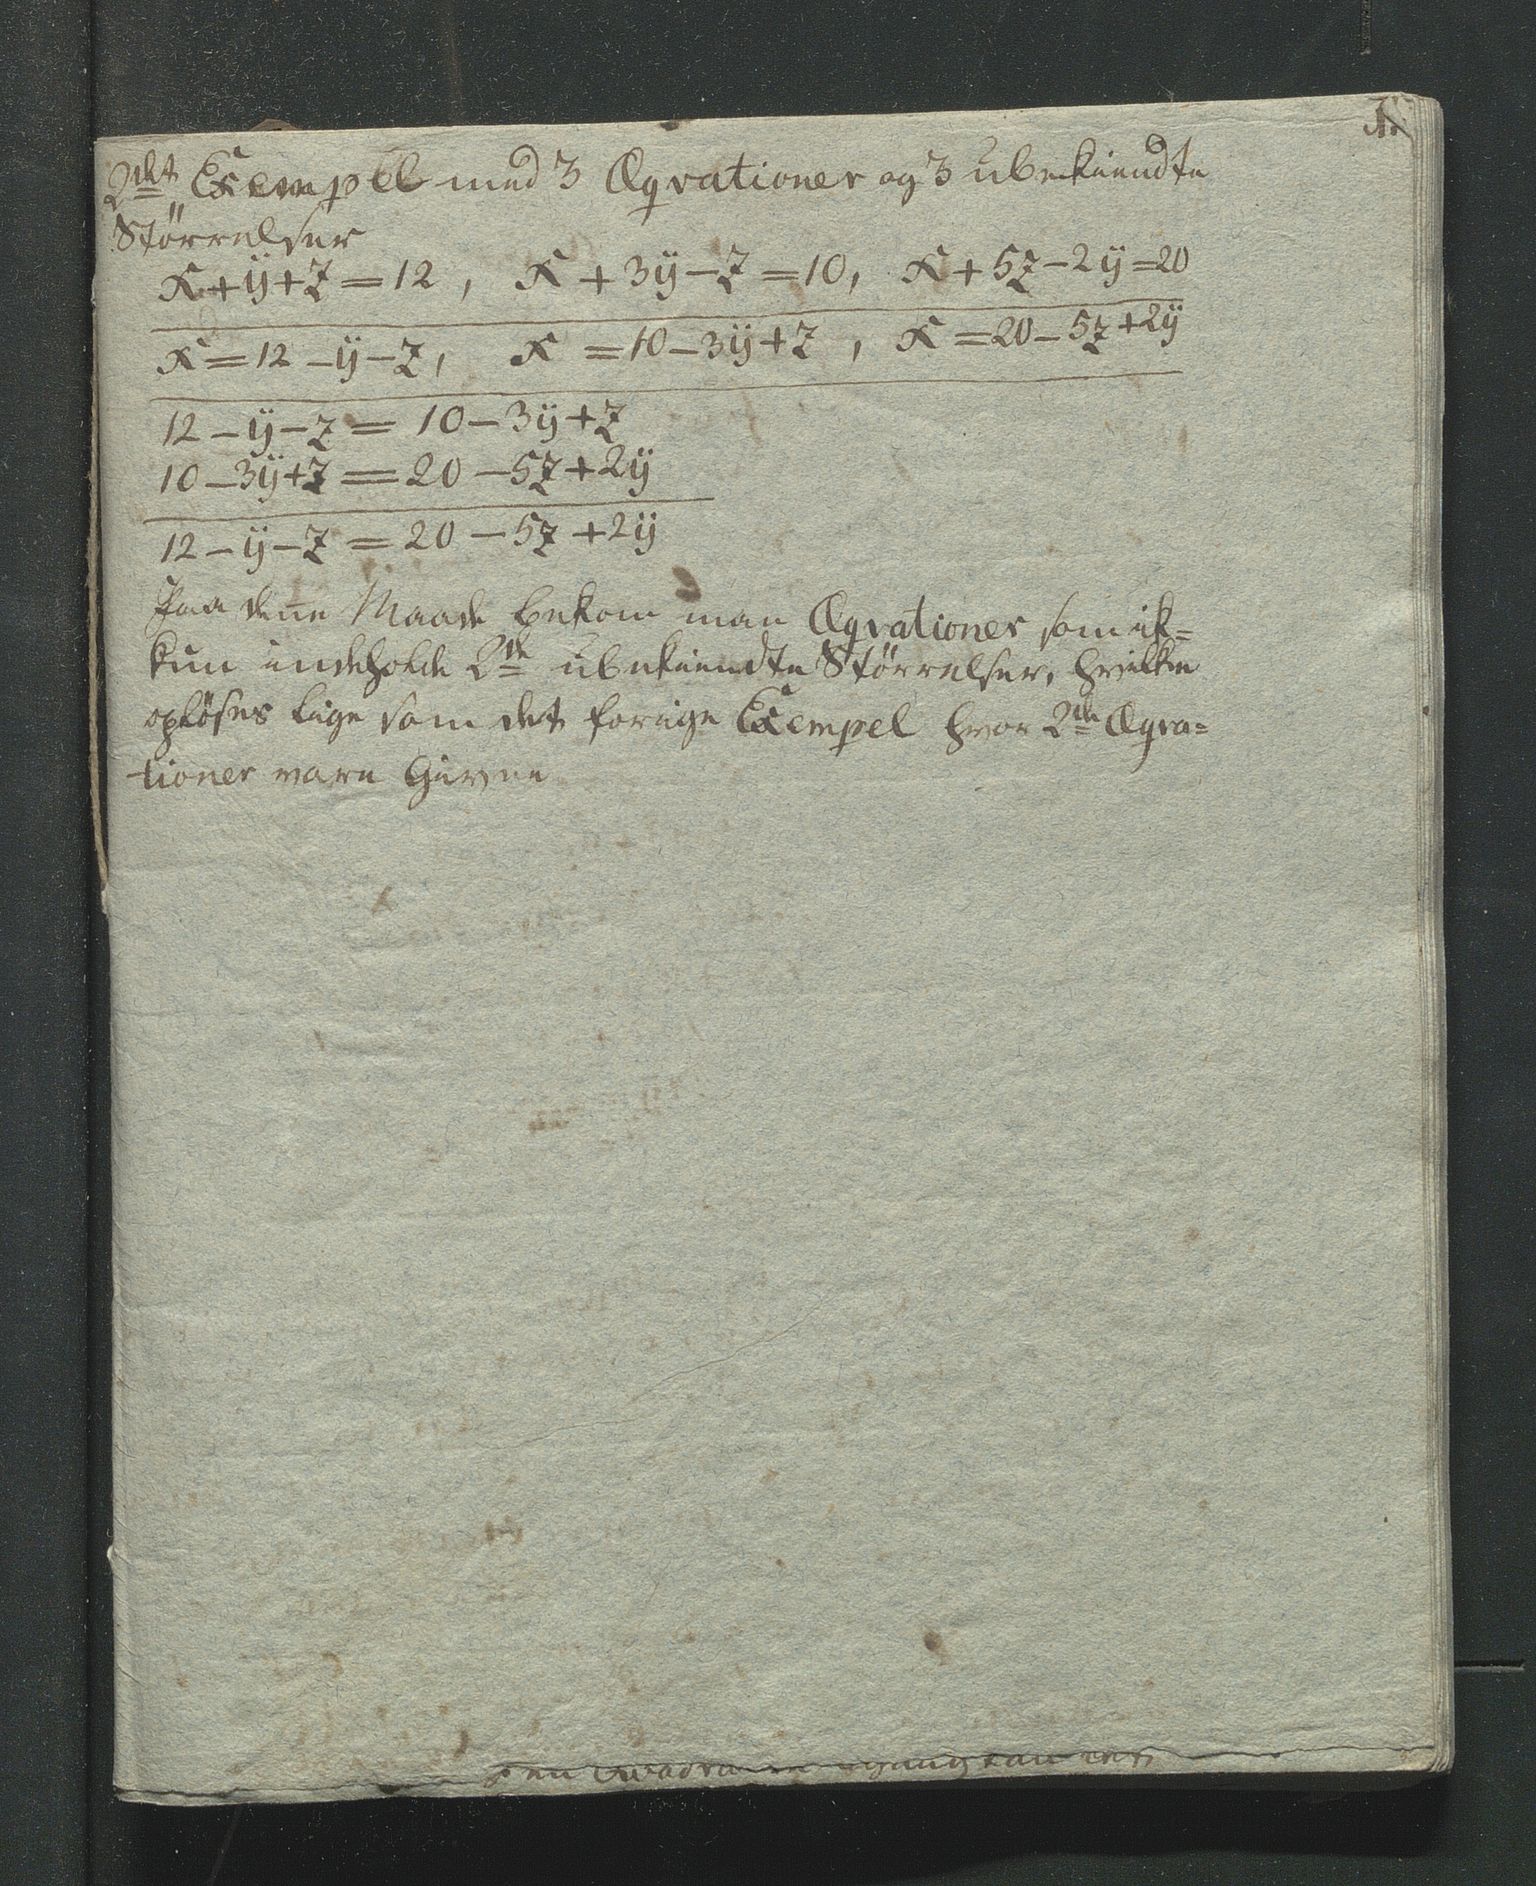 2det Exempel med 3 Æqvationer og 3 ubekiendte
Størrelser
x+ÿ+z=12, x+3ÿ-z=10, x+5z-2ÿ=20
x=12-ÿ-z, x=10-3ÿ+z, x=20-5z+2ÿ
12-ÿ-z=10-3ÿ+z
10-3ÿ+z=20-5z+2ÿ
12-ÿ-z=20-5z+2ÿ
Paa dene Maade bekom man Æqvationer som ik=
kun indeholde 2de ubekiendte Størrelser, hvilke
opløses lige som det forige Exempel hvor 2de Æqva=
tioner vare Givne